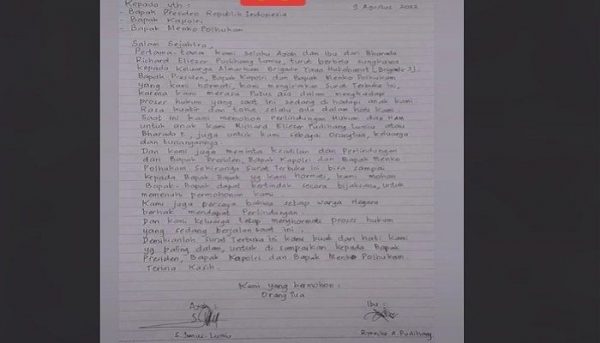 Kepada yth:
9 Agustus 2022
- Bapak Presiden Republik Indonesia
- Bapak Kapolri
- Bapak Menko Polhukam
Salam Sejahtera,
Pertama-tama kami selaku Ayah dan Ibu dari Bharada
Richard Eliezer Pudihang Lumiu, turut berbela sungkawa
kepada Keluarga Almarhum Brigadir Yosua Hutabarat (Brigadir J).
Bapak Presiden, Bapak Kapolri dan Bapak Menko Polhukam
yang kami hormati, kami mengirimkan Surat Terbuka ini,
karena kami merasa Putus asa dalam menghadapi
proses hukum yang saat ini sedang di hadapi anak kami
Rasa kwatir dan takut selalu ada dalam hati kami.
Saat ini kami memohon Perlindungan Hukum dan HAM
untuk anak kami Richard Eliezer Pudihang Lumiu atau
Bharada E, juga untuk kami sebagai Orangtua, keluarga
dan tunangannya.
Dan kami juga meminta Keadilan dan Perlindungan
dari Bapak Presiden, Bapak Kapolri dan Bapak Menko
Polhukam Sekiranya Surat Terbuka ini bisa sampai
kepada Bapak-Bapak yg kami hormati, kami mohon
Bapak-Bapak dapat bertindak secara bijaksana, untuk
memenuhi permohonan kami.
Kami juga percaya bahwa setiap warga Negara
berhak mendapat Perlindungan.
Dan kami keluarga tetap menghormati proses hukum
yang sedang berjalan saat ini.
Demikianlah Surat Terbuka ini kami buat dari hati kami
yg paling dalam, untuk di sampaikan kepada Bapak
Presiden, Bapak Kapolri dan Bapak Menko Polhukam
Terima Kasih.
Kami yang bermohon:
Orang Tua
Ayah: Ibu:
S. Junus Lumiu Rynecke A. Pudihang